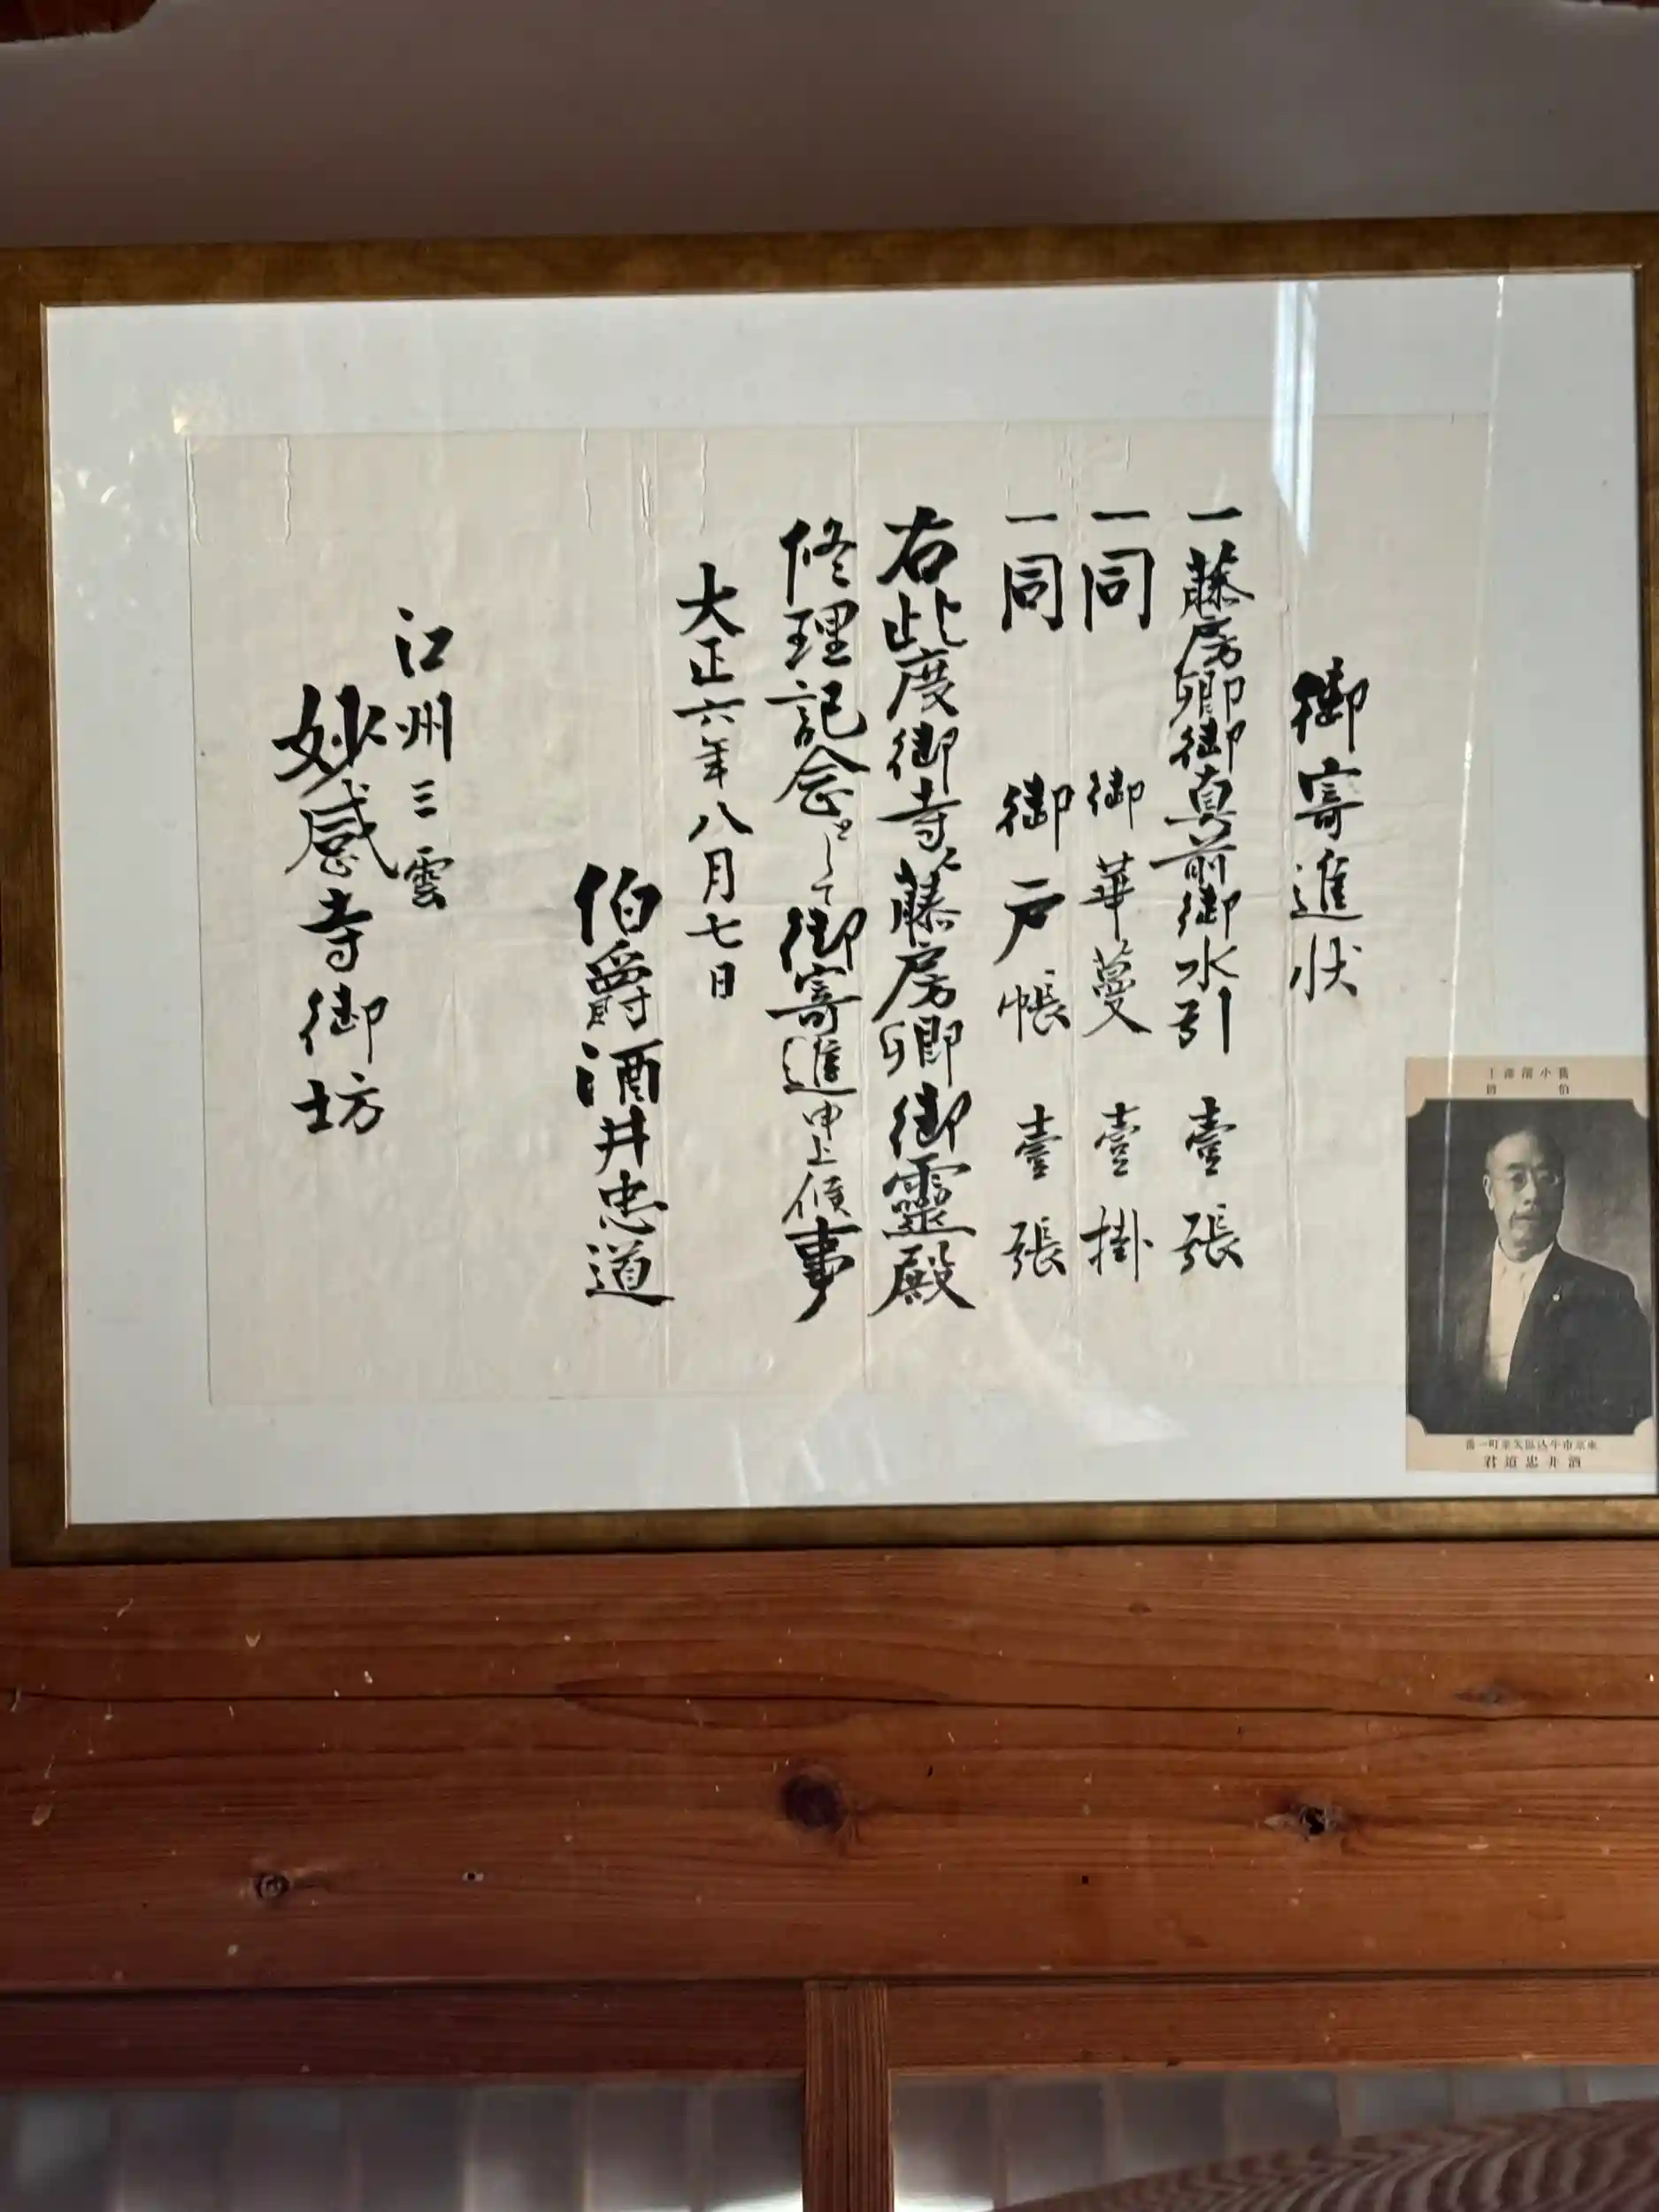 御寄進状
一藤房卿御真前御水引 壹張
一同 御華蔓 壹掛
一同 御戸帳 壹張
右此度御寺ニ藤房卿御靈殿
修理記念として御寄進申上候事
大正六年八月七日
伯爵酒井忠道
江州三雲
妙感寺御坊
舊小濱藩主
伯爵
東京市牛込區矢來町一番
酒井忠道君